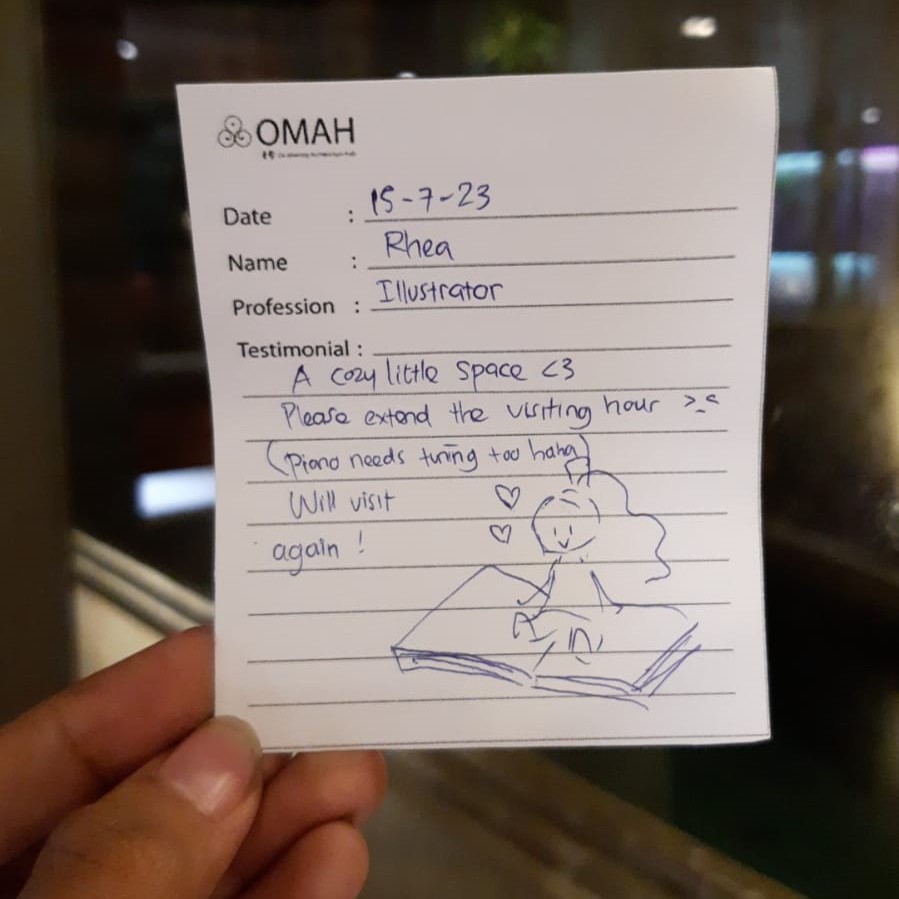 OMAH
Date : 15-7-23
Name : Rhea
Profession : Illustrator
Testimonial :
A cozy little space <3
Please extend the visiting hour >_<
(Piano needs tuning too haha)
Will visit
again !